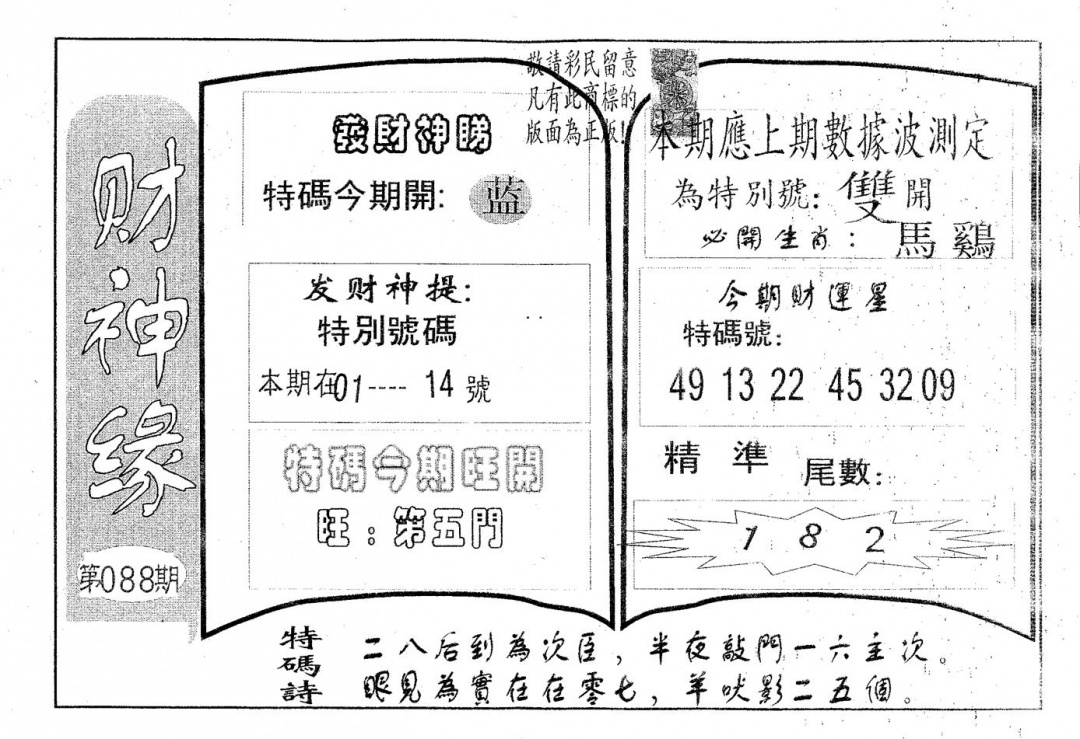 财神缘
第088期
敬請彩民留意
凡有此商標的
版面為正版!
發財神睇
特碼今期開: 蓝
发财神提:
特別號碼
本期在01----14號
特碼今期旺開
旺:第五門
本期應上期數據波測定
為特別號: 雙開
必開生肖: 馬鷄
今期财運星
特碼號:
49 13 22 45 32 09
精準 尾數:
1 8 2
特碼詩
二八后到為次臣,半夜敲門一六主次。
眼見為實在在零七,羊吠影二五個。